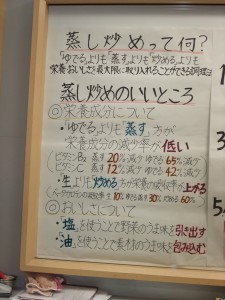 蒸し炒めって何?
「ゆでる」よりも「蒸す」よりも「炒める」よりも
栄養・おいしさを最大限に取り入れることができる調理法
蒸し炒めのいいところ
◎栄養成分について
・「ゆでる」よりも 蒸す 方が
栄養成分の減少率が 低い
ビタミンB₂ 蒸す20%減少 ゆでる65%減少
ビタミンC 蒸す12%減少 ゆでる42%減少
・生よりも炒める方が栄養の吸収率が上がる
生10% ゆで蒸す30% 炒める60%
◎おいしさについて
・塩を使うことで野菜のうま味を引き出す
・「油」を使うことで素材のうま味を包み込む